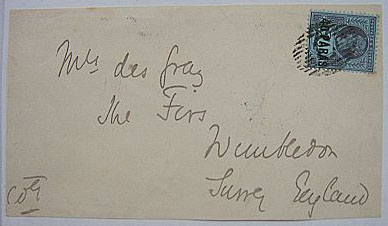 40 PARAS
Mrs des Graz
The Firs
Wimbledon
Surrey England